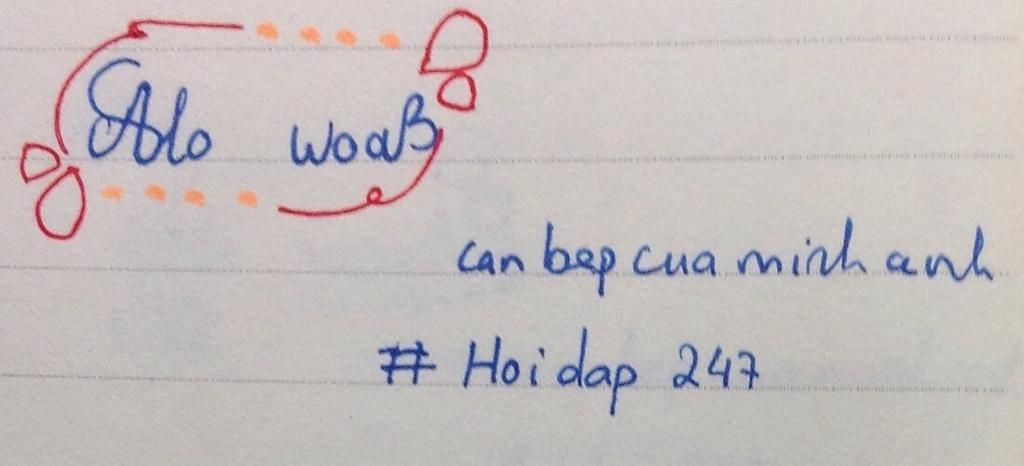 Alo woaß
can bep cua minh anh
# Hoidap 247